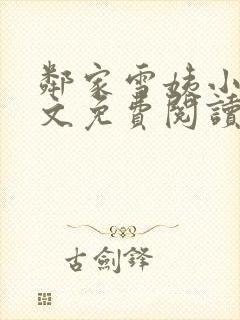 鄰家雪姨小
文免費閱讀
古劍鋒